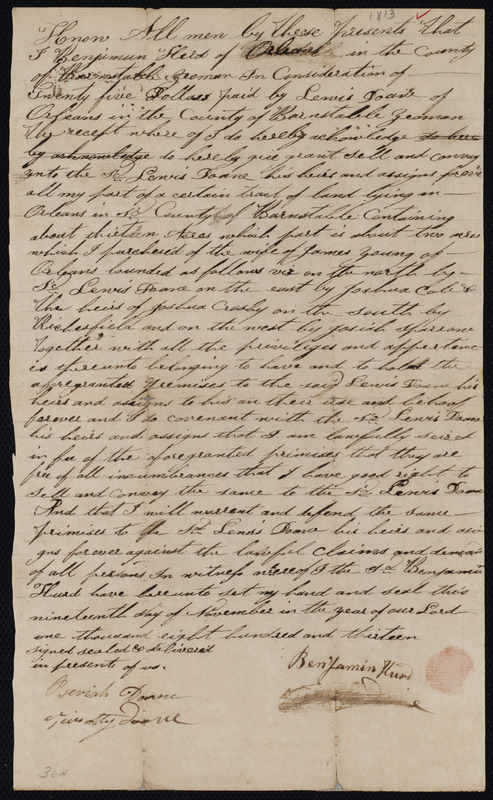 1813
Know All men by these presents that
I Benjamin Hurd of Orleans in the County
of Barnstable Yeoman In Consideration of
Twenty five Dollars paid by Lewis Doane of
Orleans in the County of Barnstable Yeoman
the recept where of I do hereby acknowledge do here
by acknowledge do hereby give grant Sell and convey
unto the Sd Lewis Doane his heirs and assigns
all my part of a certain tract of land lying in
Orleans in Sd County of Barnstable Containing
about thirteen Acres which part is about two
which I purchased of the wife of James Young of
Orleans bounded as follows viz on the north by
Sd Lewis Doane on the east by Joshua Cole &
the heirs of Joshua Crosby on the south by
and on the west by Josiah Sparrow
together with all the privileges and appertenc
is thereunto belonging to have and to hold the
afforegranted premises to the said Lewis Doane his
heirs and assigns to his on their use and behoof
forever and I do covenant with the Sd Lewis Doane
his heirs and assigns that I am lawfully seized
in fee of the aforegranted primises that they are
free of all incumbrances that I have good right to
Sell and convey the same to the Sd Lewis Doane
And that I will warrent and defend the same
primises to the Sd Lewis Doane his heirs and asi
gns forever against the lawful Claims and demands
of all persons In witness whereof I the Sd Benjamin
Hurd have hereunto set my hand and seal this
nineteenth day of November in the year of our Lord
one thousand eight hundred and thirteen
signed sealed & delivered
in presents of us.
Benjamin Hurd
Beriah Doane
Timothy Doane
36A